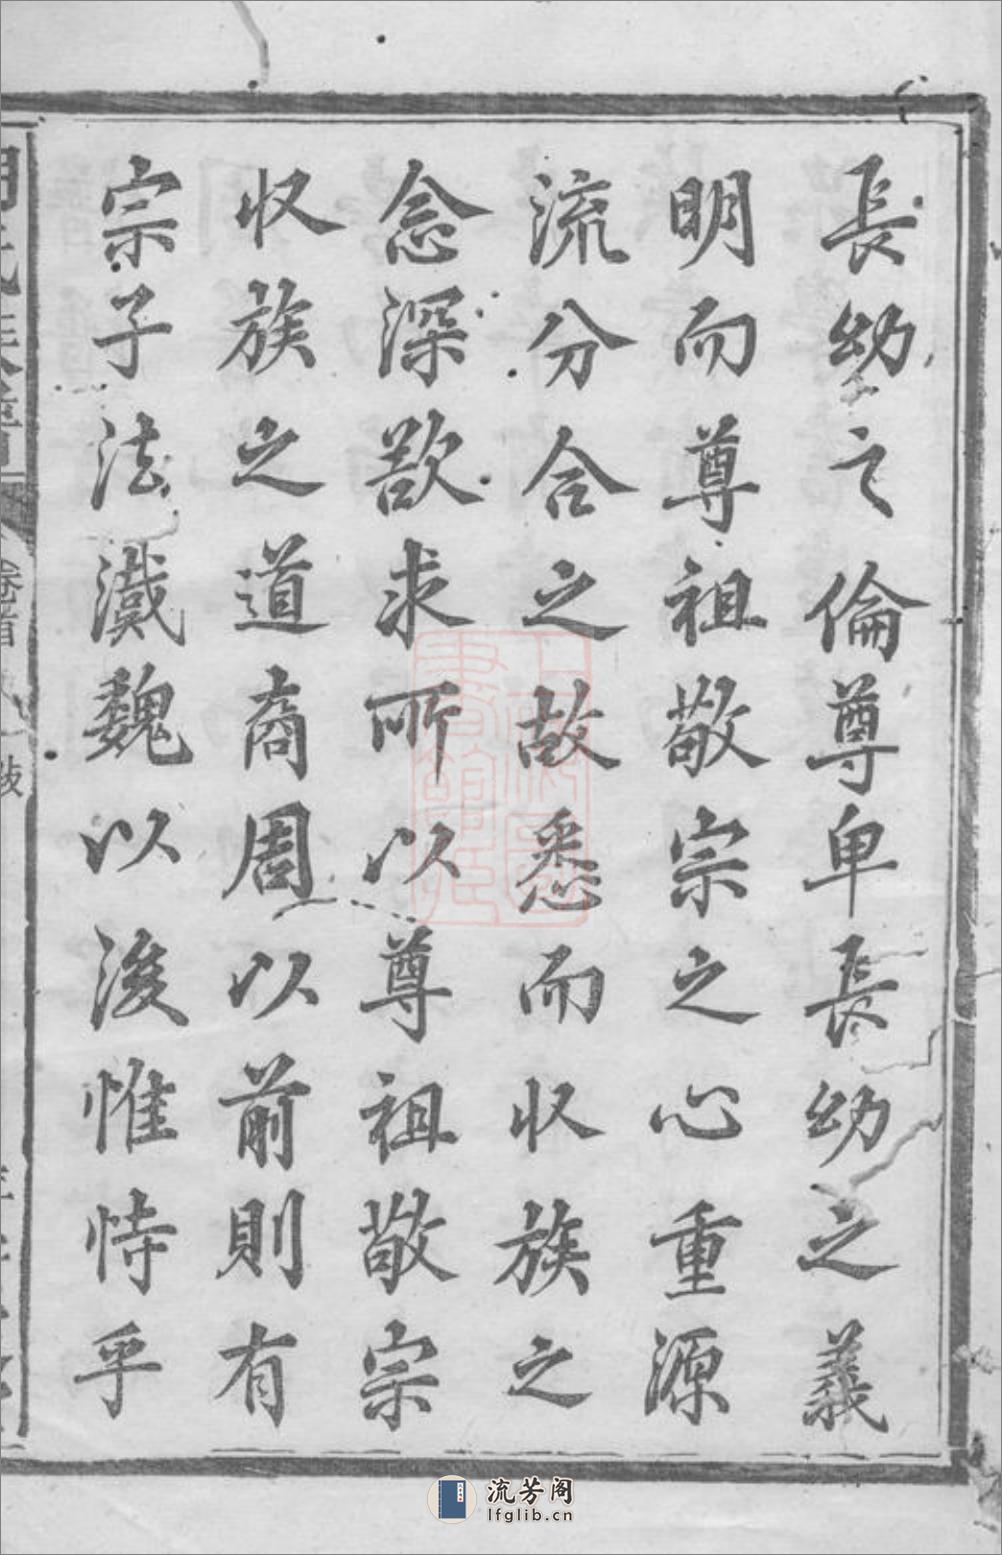 長幼之倫尊卑長幼之義
明而尊祖敬宗之心重源
流分合之故悉而収族之
念深欲求所以尊祖敬宗
収族之道商周以前則有
宗子法漢魏以後惟恃乎
卷首
流芳阁
lfglib.cn